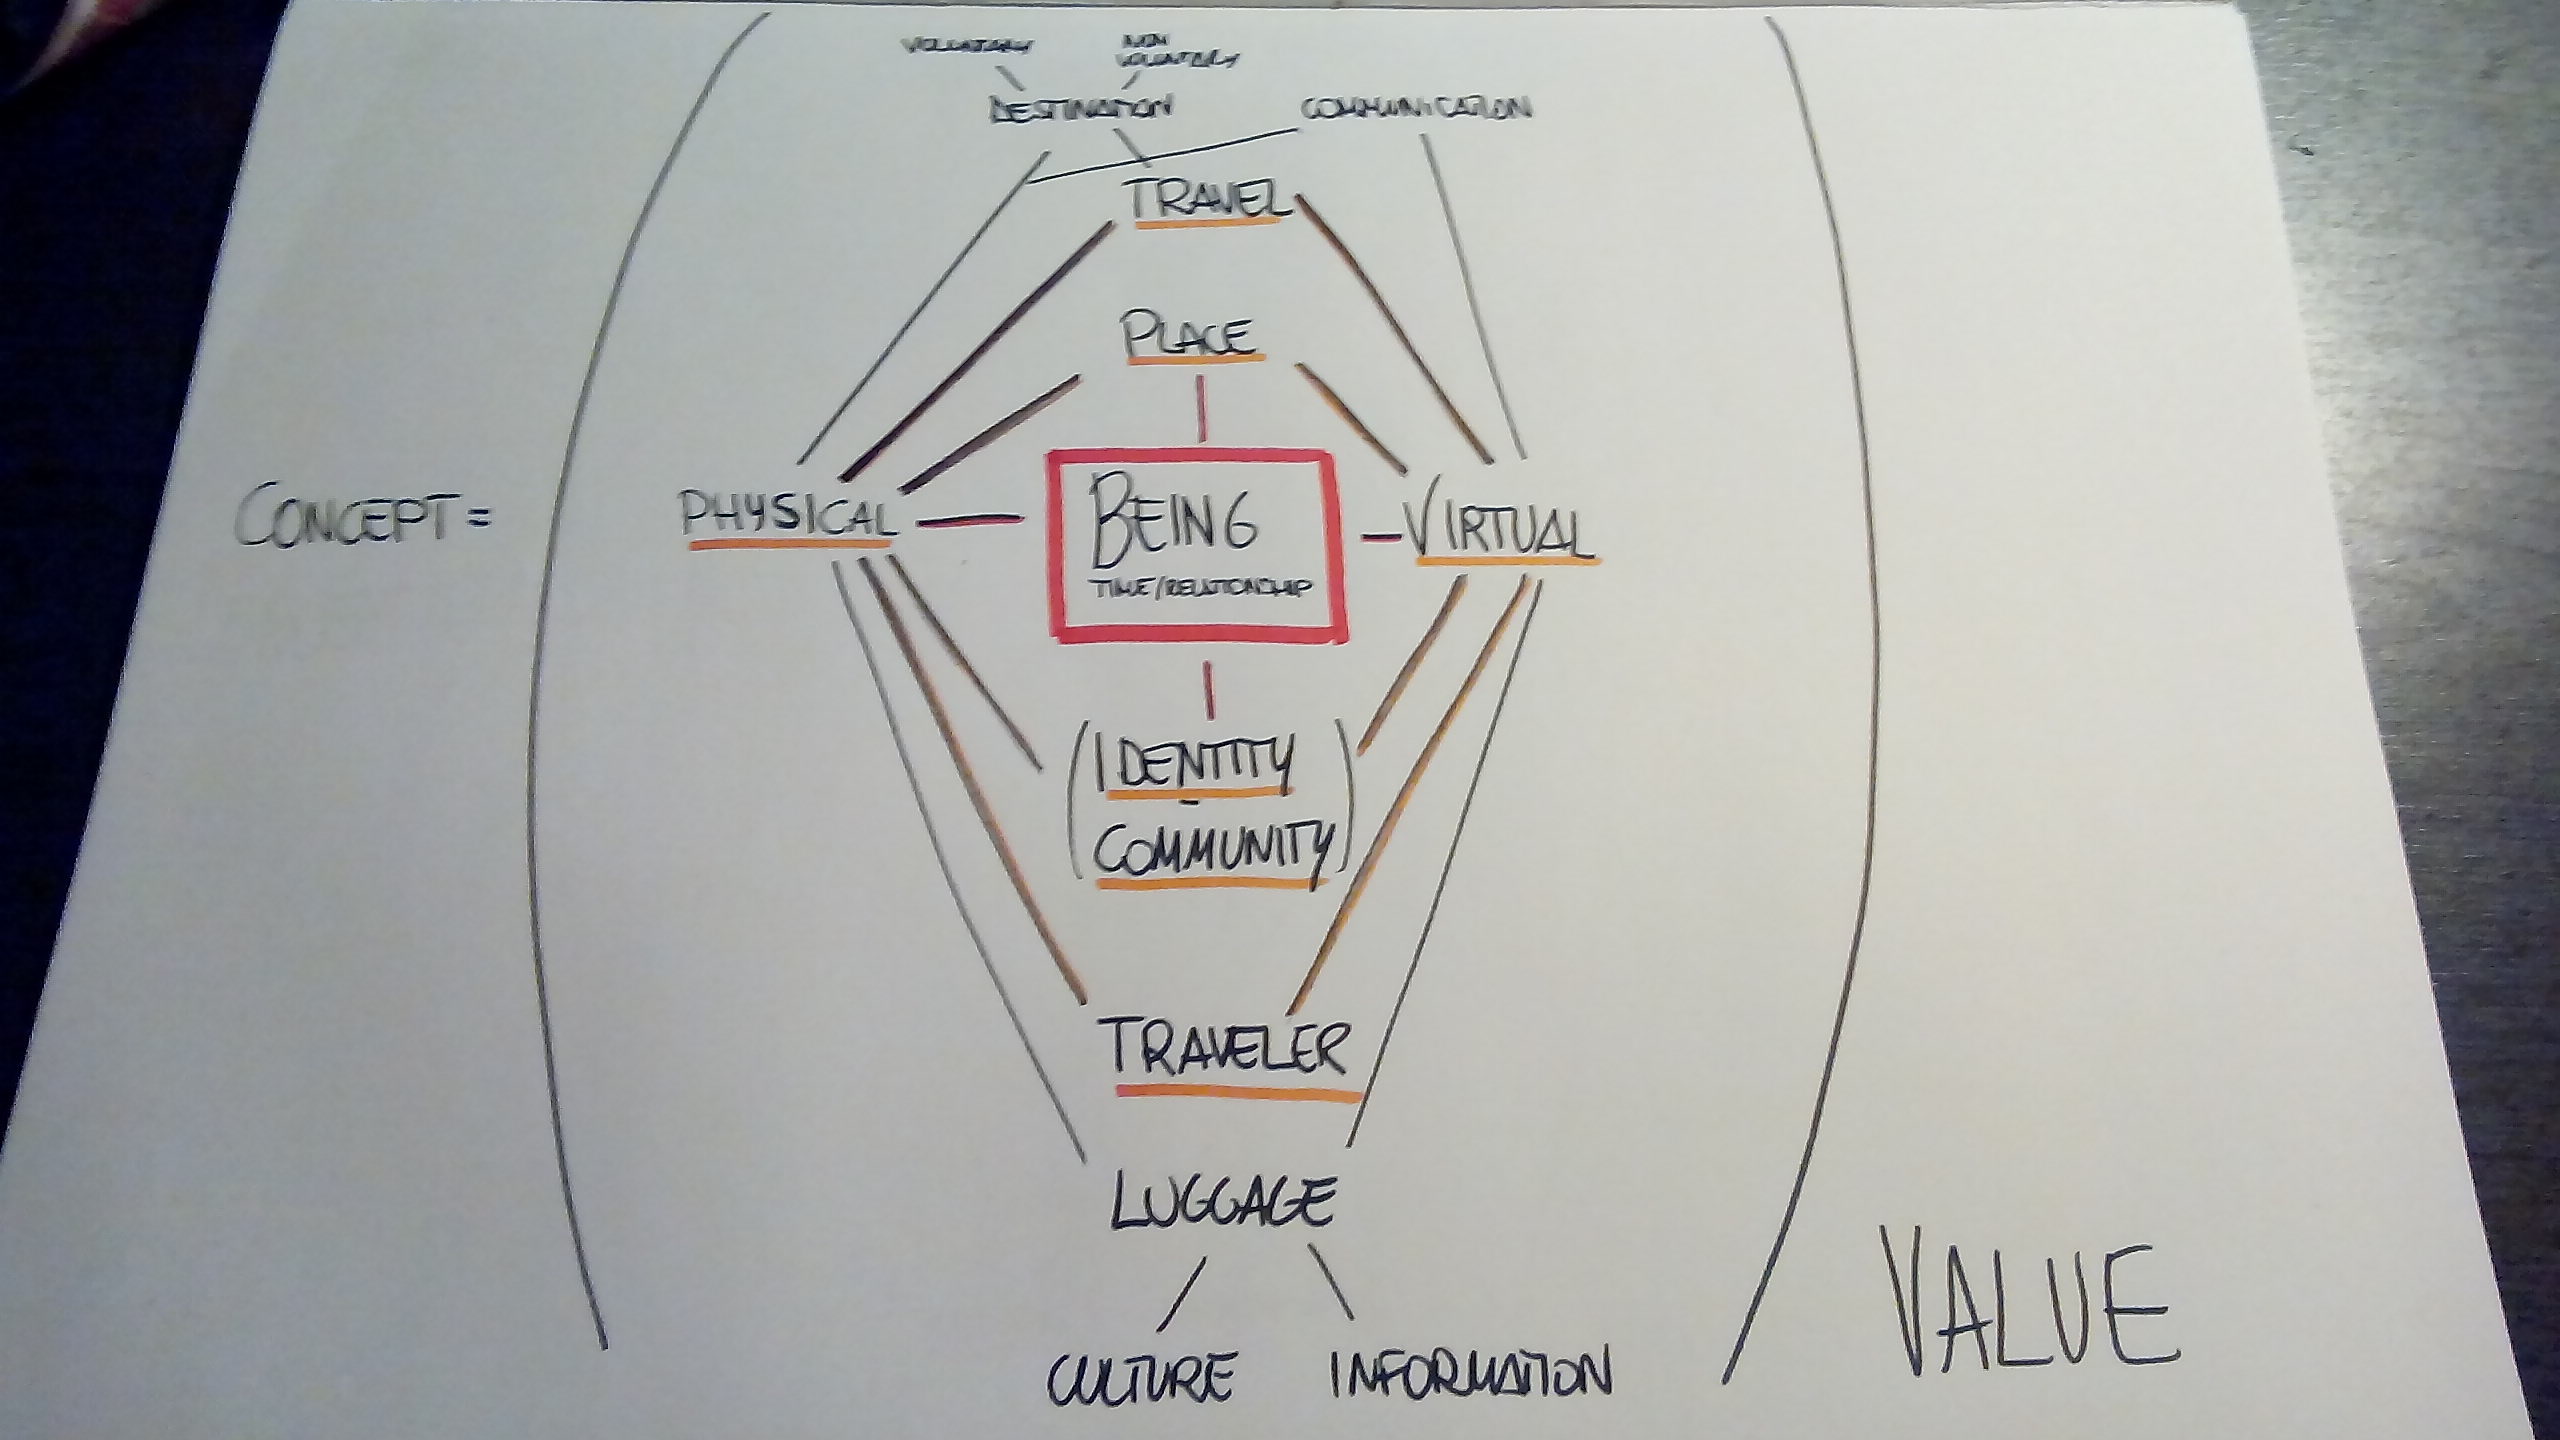 VOLUNTARY
NON
VOLUNTARY
DESTINATION
COMMUNICATION
TRAVEL
PLACE
CONCEPT =
PHYSICAL
BEING
TIME/RELATIONSHIP
VIRTUAL
(IDENTITY
COMMUNITY)
TRAVELER
LUGGAGE
CULTURE
INFORMATION
VALUE